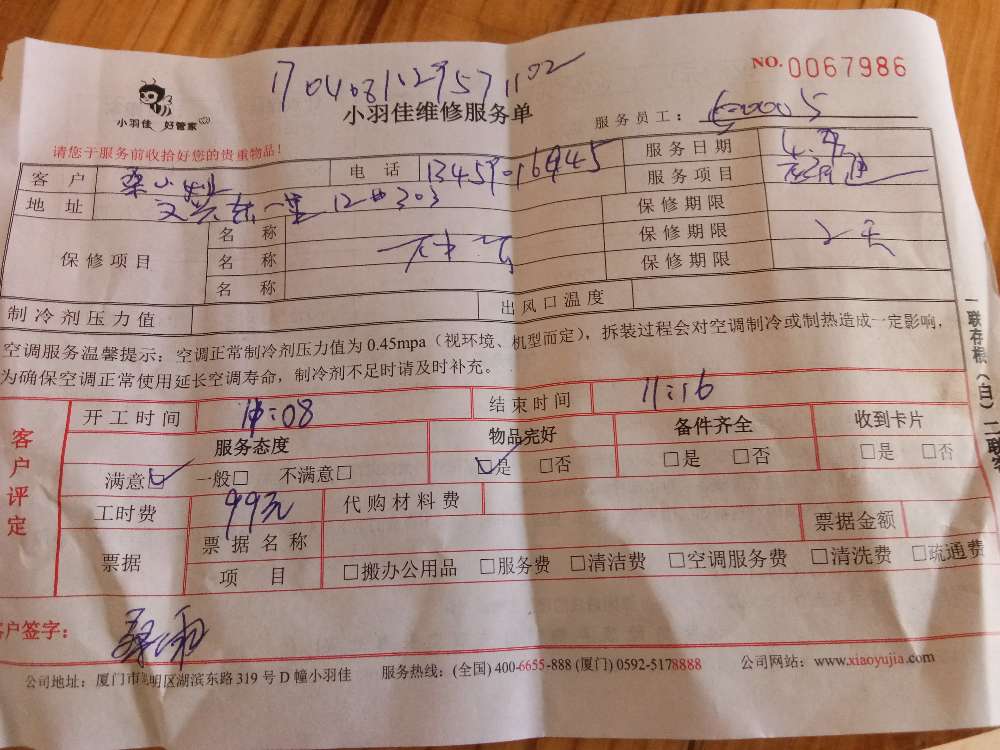 1704081129571102
NO. 0067986
小羽佳 好管家
小羽佳维修服务单
服务员工: 600005
请您于服务前收拾好您的贵重物品!
客户 电话 服务日期
地址 文兴东一里 12#303 服务项目
保修项目 名称 保修期限
名称 保修期限 2天
名称 保修期限
制冷剂压力值 出风口温度
空调服务温馨提示: 空调正常制冷剂压力值为 0.45mpa (视环境、机型而定), 拆装过程会对空调制冷或制热造成一定影响,
为确保空调正常使用延长空调寿命, 制冷剂不足时请及时补充。
一联存根 (白) 二联客
客户评定
开工时间 :08 结束时间 11:16
服务态度 物品完好 备件齐全 收到卡片
满意☑ 一般□ 不满意□ ☑是 □否 □是 □否 □是 □否
工时费 99元 代购材料费
票据 票据名称 票据金额
项目 □搬办公用品 □服务费 □清洁费 □空调服务费 □清洗费 □疏通费
客户签字:
公司地址: 厦门市思明区湖滨东路 319 号 D 幢小羽佳 服务热线: (全国) 400-6655-888 (厦门) 0592-5178888 公司网站: www.xiaoyujia.com